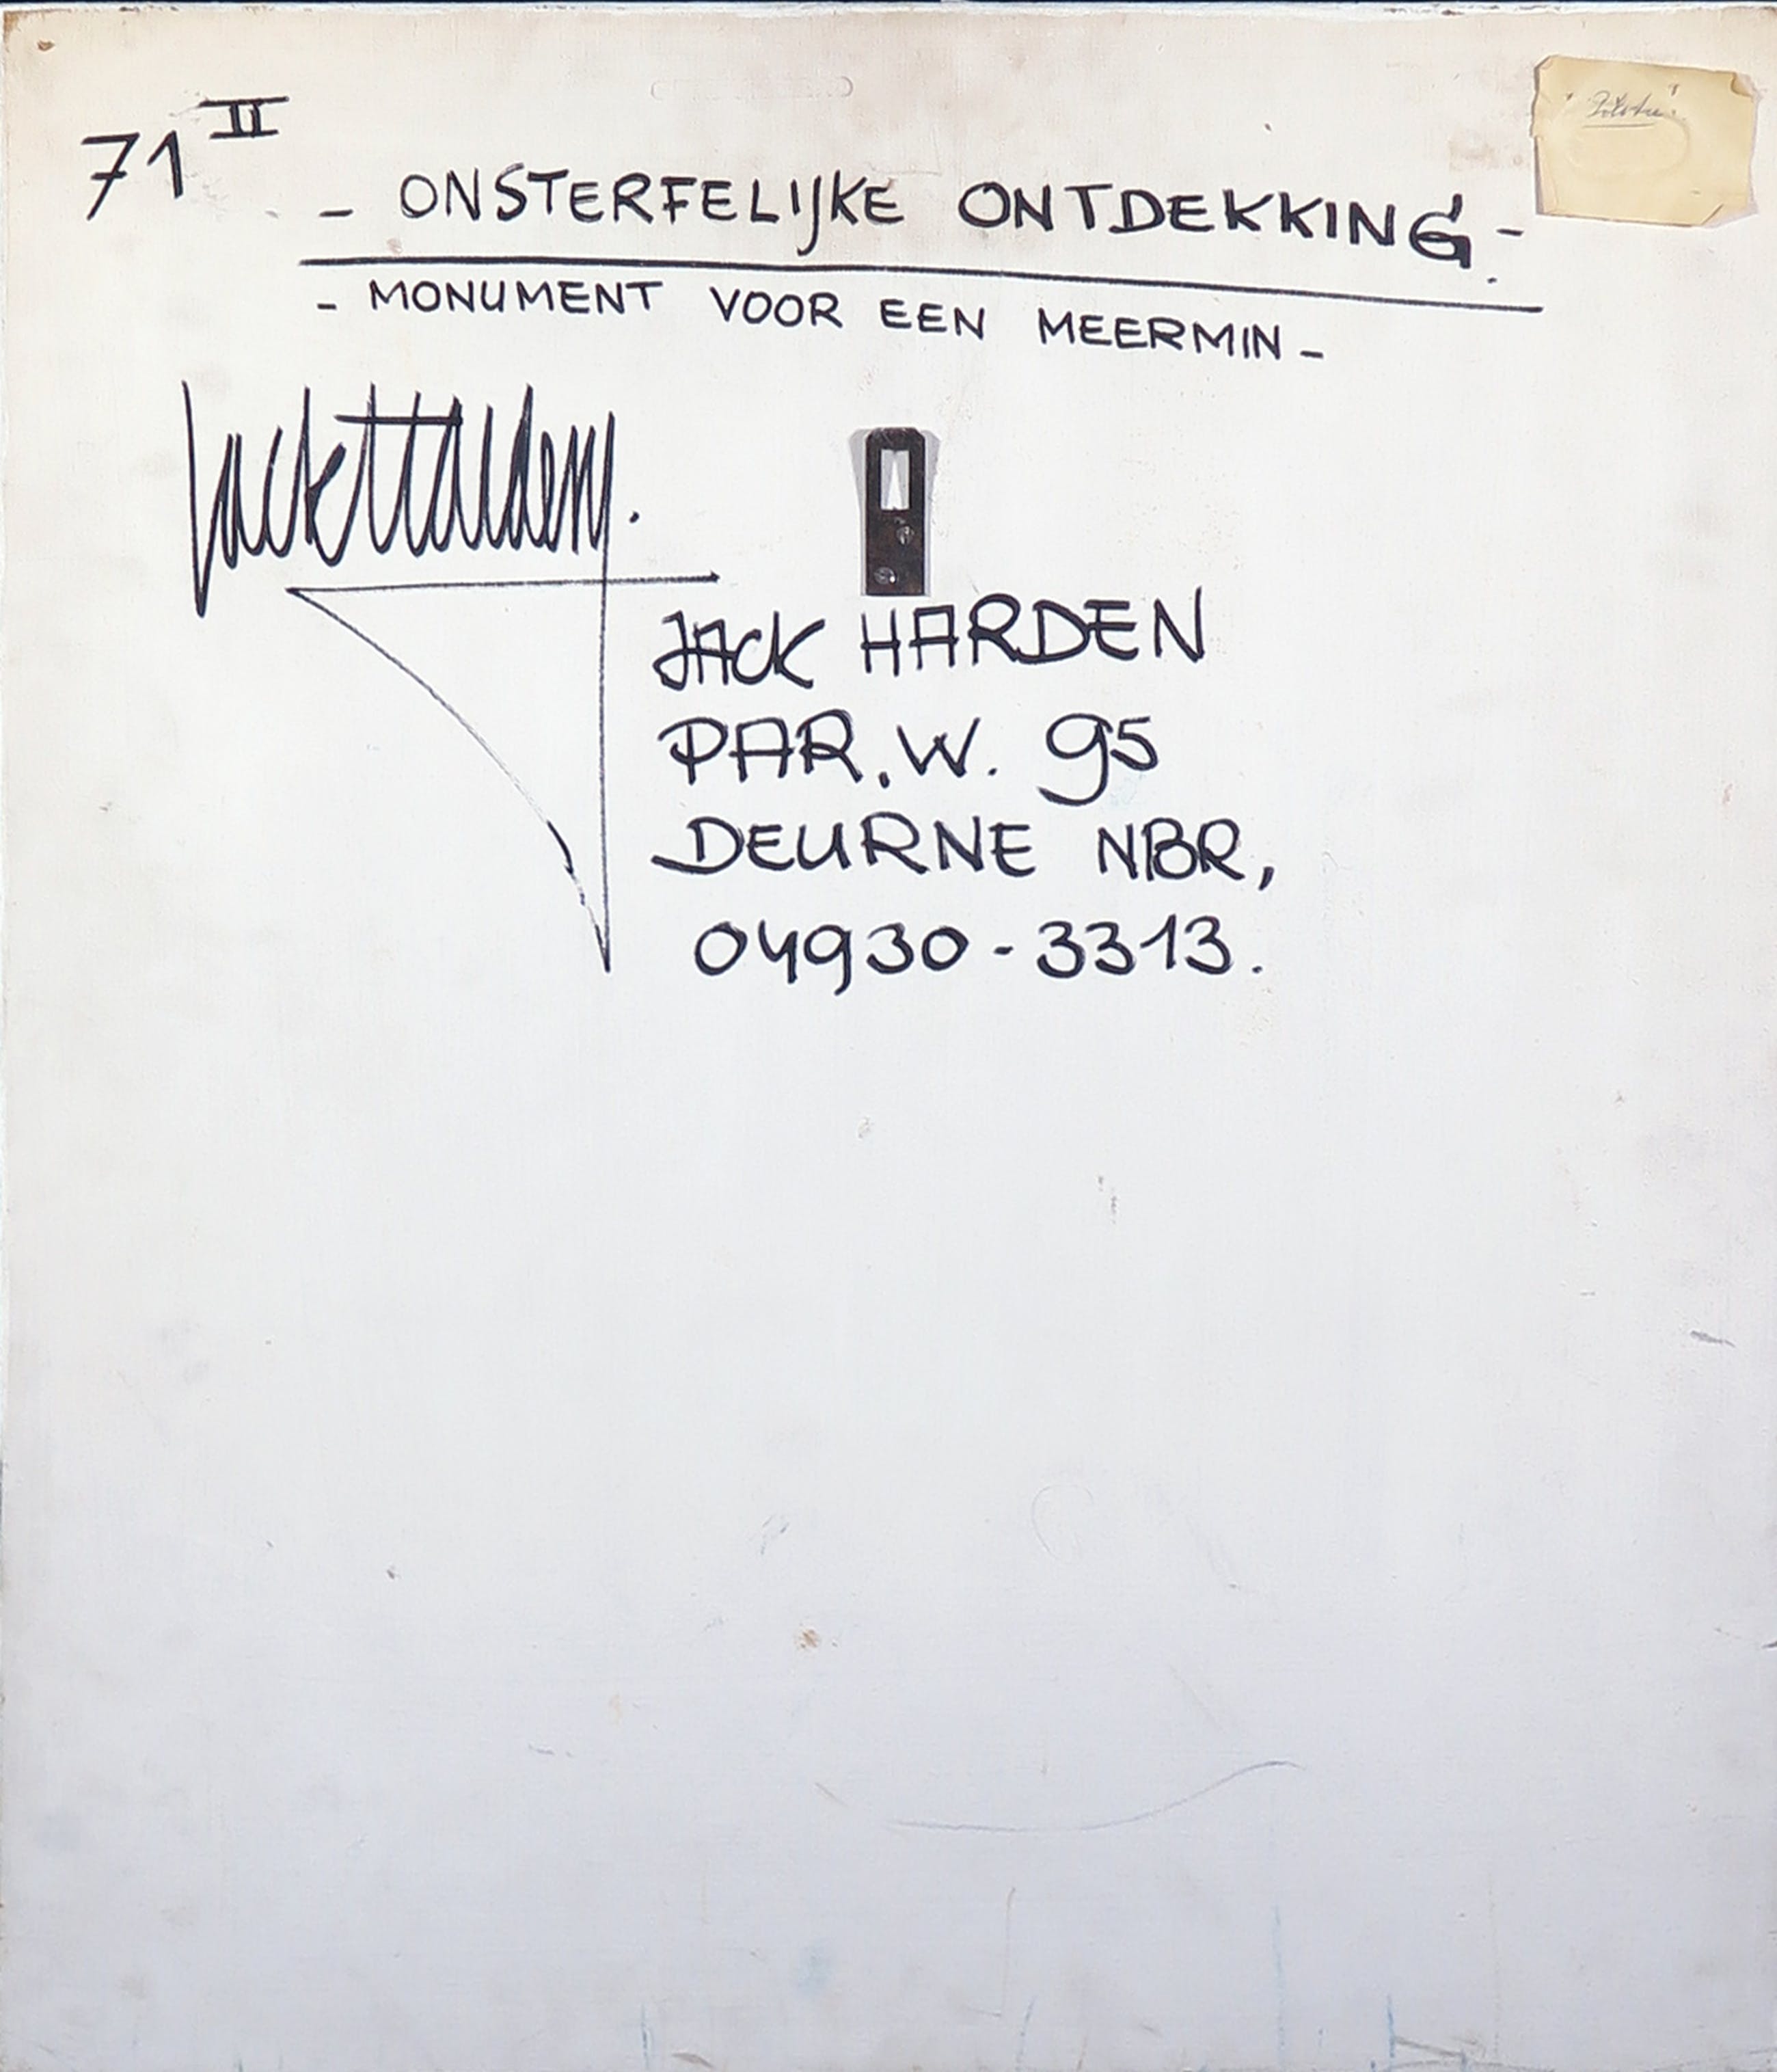 71 II
- ONSTERFELIJKE ONTDEKKING. -
- MONUMENT VOOR EEN MEERMIN -
Jack Harden.
JACK HARDEN
PAR. W. 95
DEURNE NBR,
04930-3313.